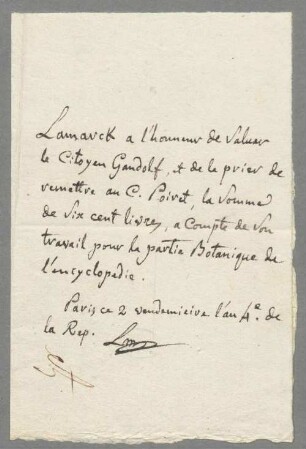 Lamarck a l'honneur de saluer
le Citoyen Gandolf, et de le prier de
remettre au C. Poiret, la somme
de six cent livres, a compte de son
travail pour la partie Botanique de
l'encyclopedie.
Paris ce 2 vendemieire l'an 4e. de
la Rep. Lam